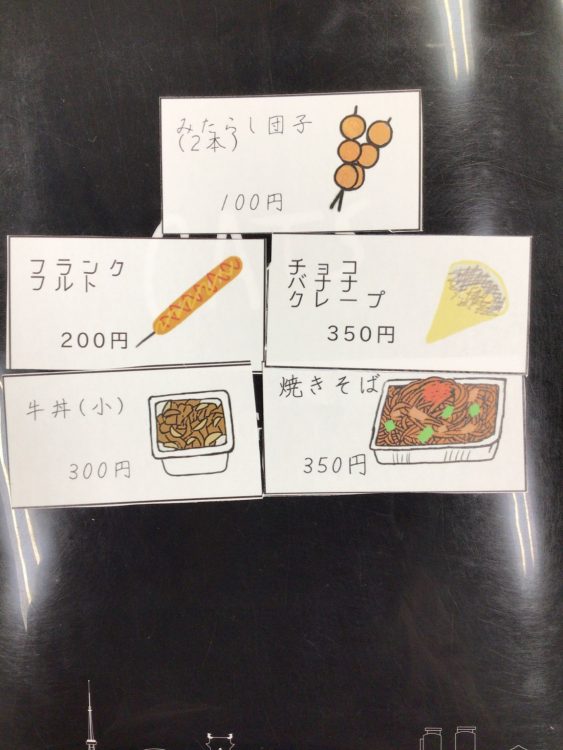 みたらし団子
(2本)
100円
フランク
フルト
200円
チョコ
バナナ
クレープ
350円
牛丼(小)
300円
焼きそば
350円